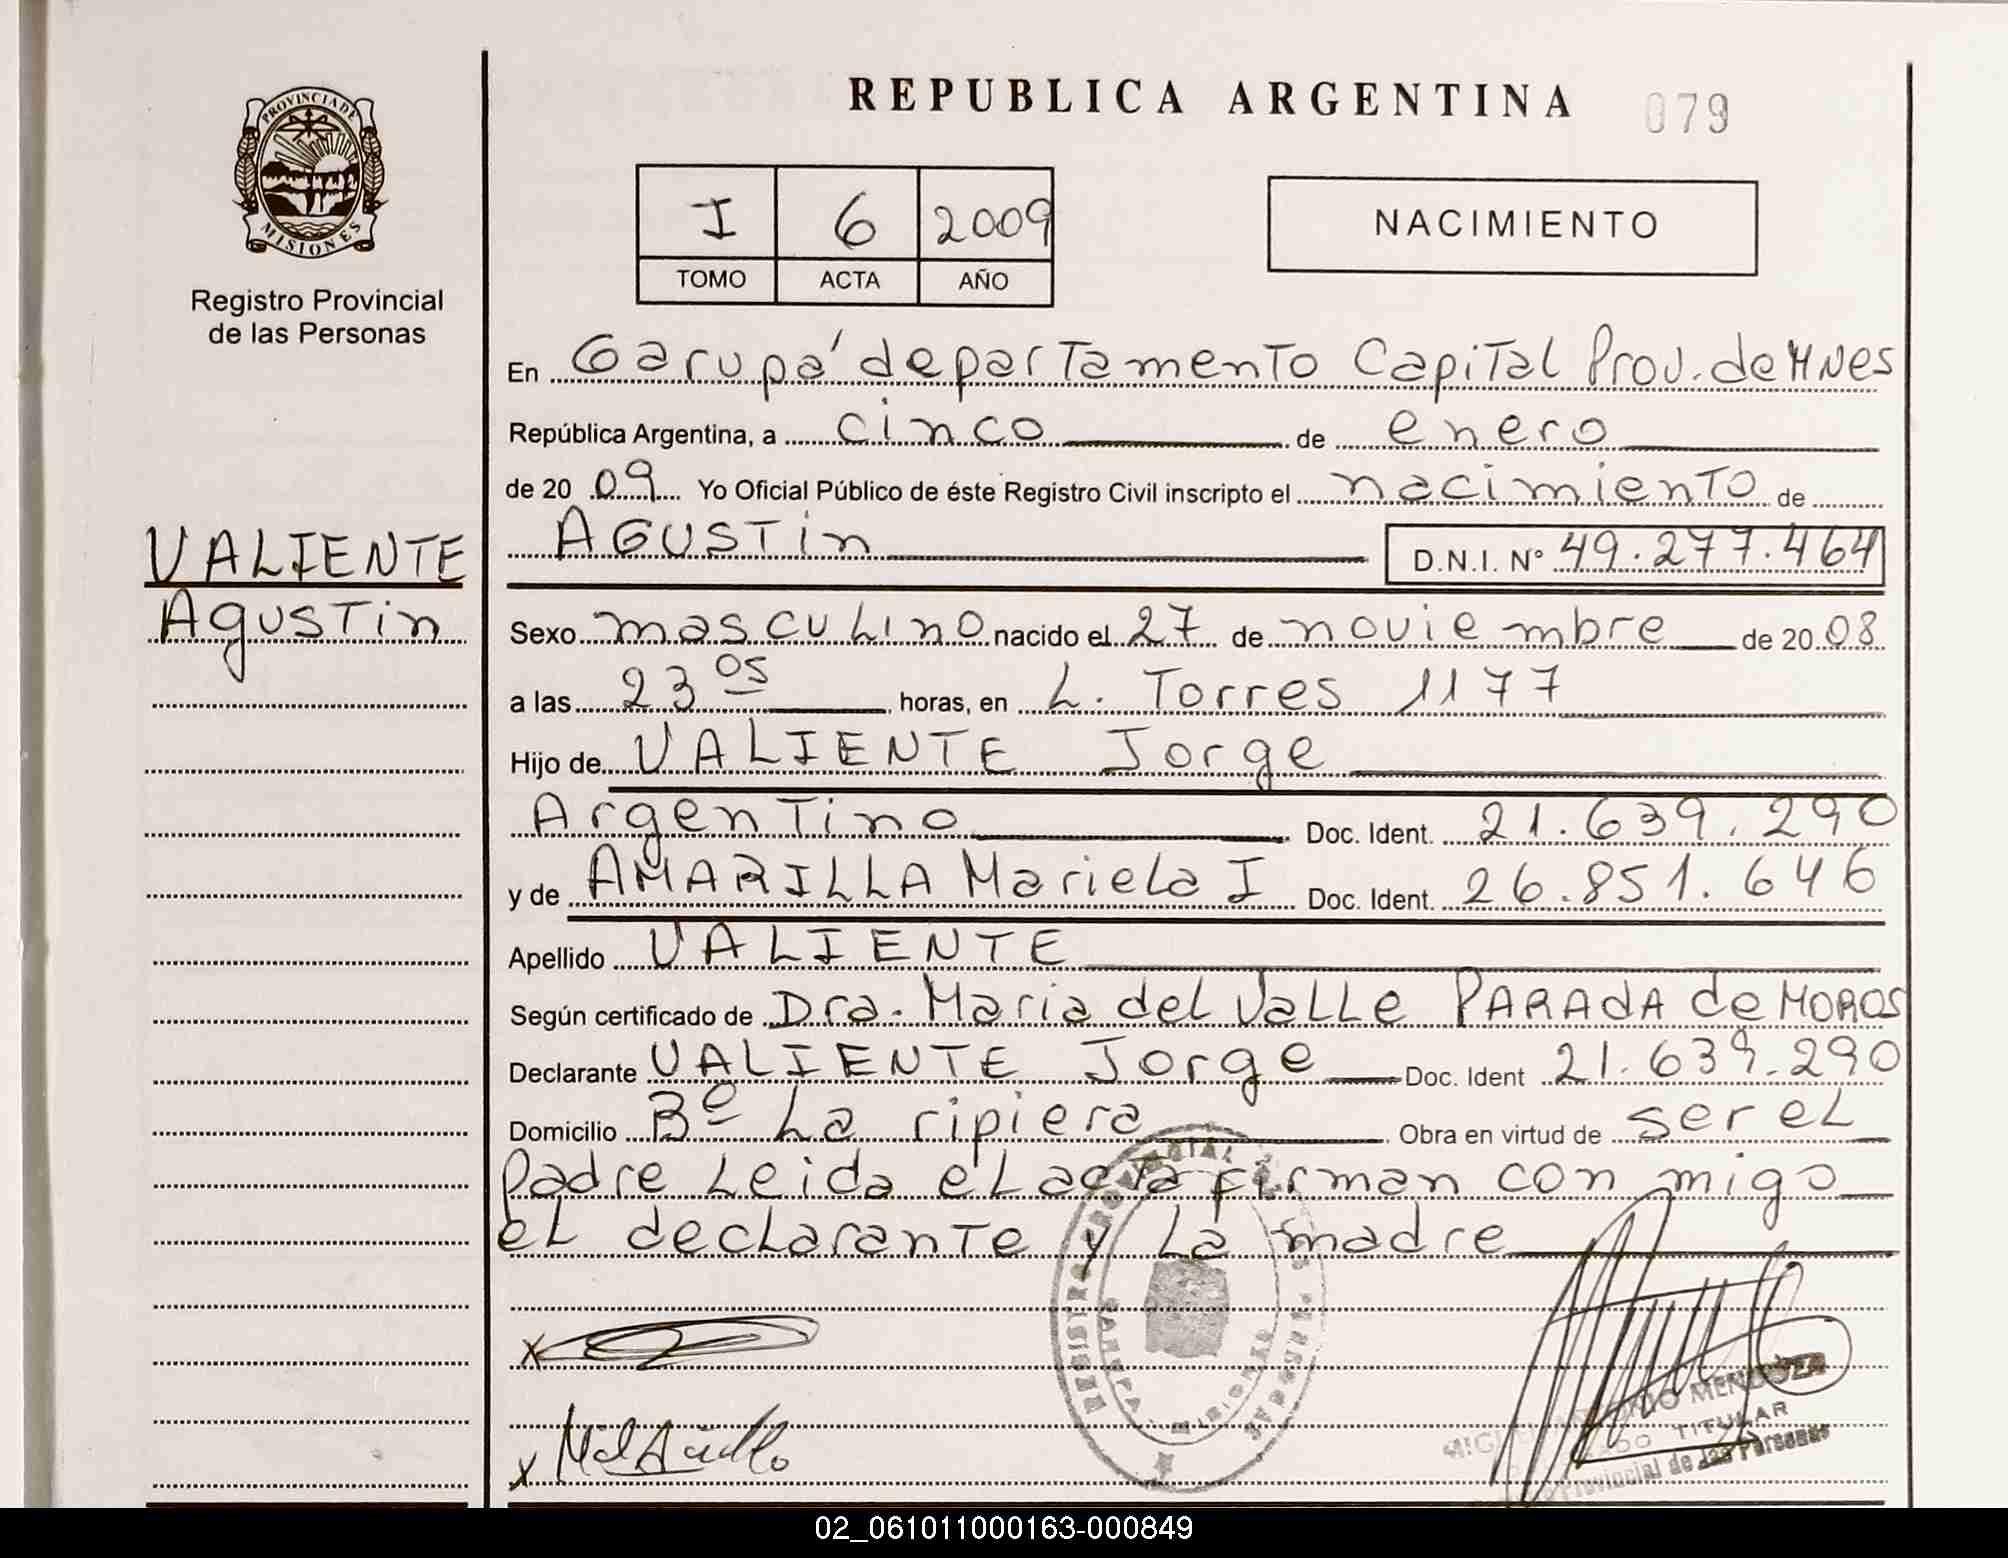 REPUBLICA ARGENTINA 079
PROVINCIA DE
MISIONES
Registro Provincial
de las Personas
I 6 2009
TOMO ACTA AÑO
NACIMIENTO
En Garupá departamento Capital Prov. de Mnes
República Argentina, a cinco de enero
de 20 09 Yo Oficial Público de éste Registro Civil inscripto el nacimiento de
VALIENTE
Agustin
AGUSTin D.N.I. Nº 49.277.464
Sexo masculino nacido el 27 de noviembre de 20 08
a las 23 05 horas, en L. Torres 1177
Hijo de VALIENTE Jorge
Argentino Doc. Ident. 21.639.290
y de AMARILLA Mariela I Doc. Ident. 26.851.646
Apellido VALIENTE
Según certificado de Dra. Maria del Valle PARADA de MOROS
Declarante VALIENTE Jorge Doc. Ident 21.639.290
Domicilio Bº La ripiera Obra en virtud de ser el
Padre Leida el acta firman con migo
el declarante y la madre
x
x
REGISTRO PROVINCIAL
GARUPA - MISIONES
ANTONIO MENDOZA
TITULAR
Provincial de las Personas
02_061011000163-000849